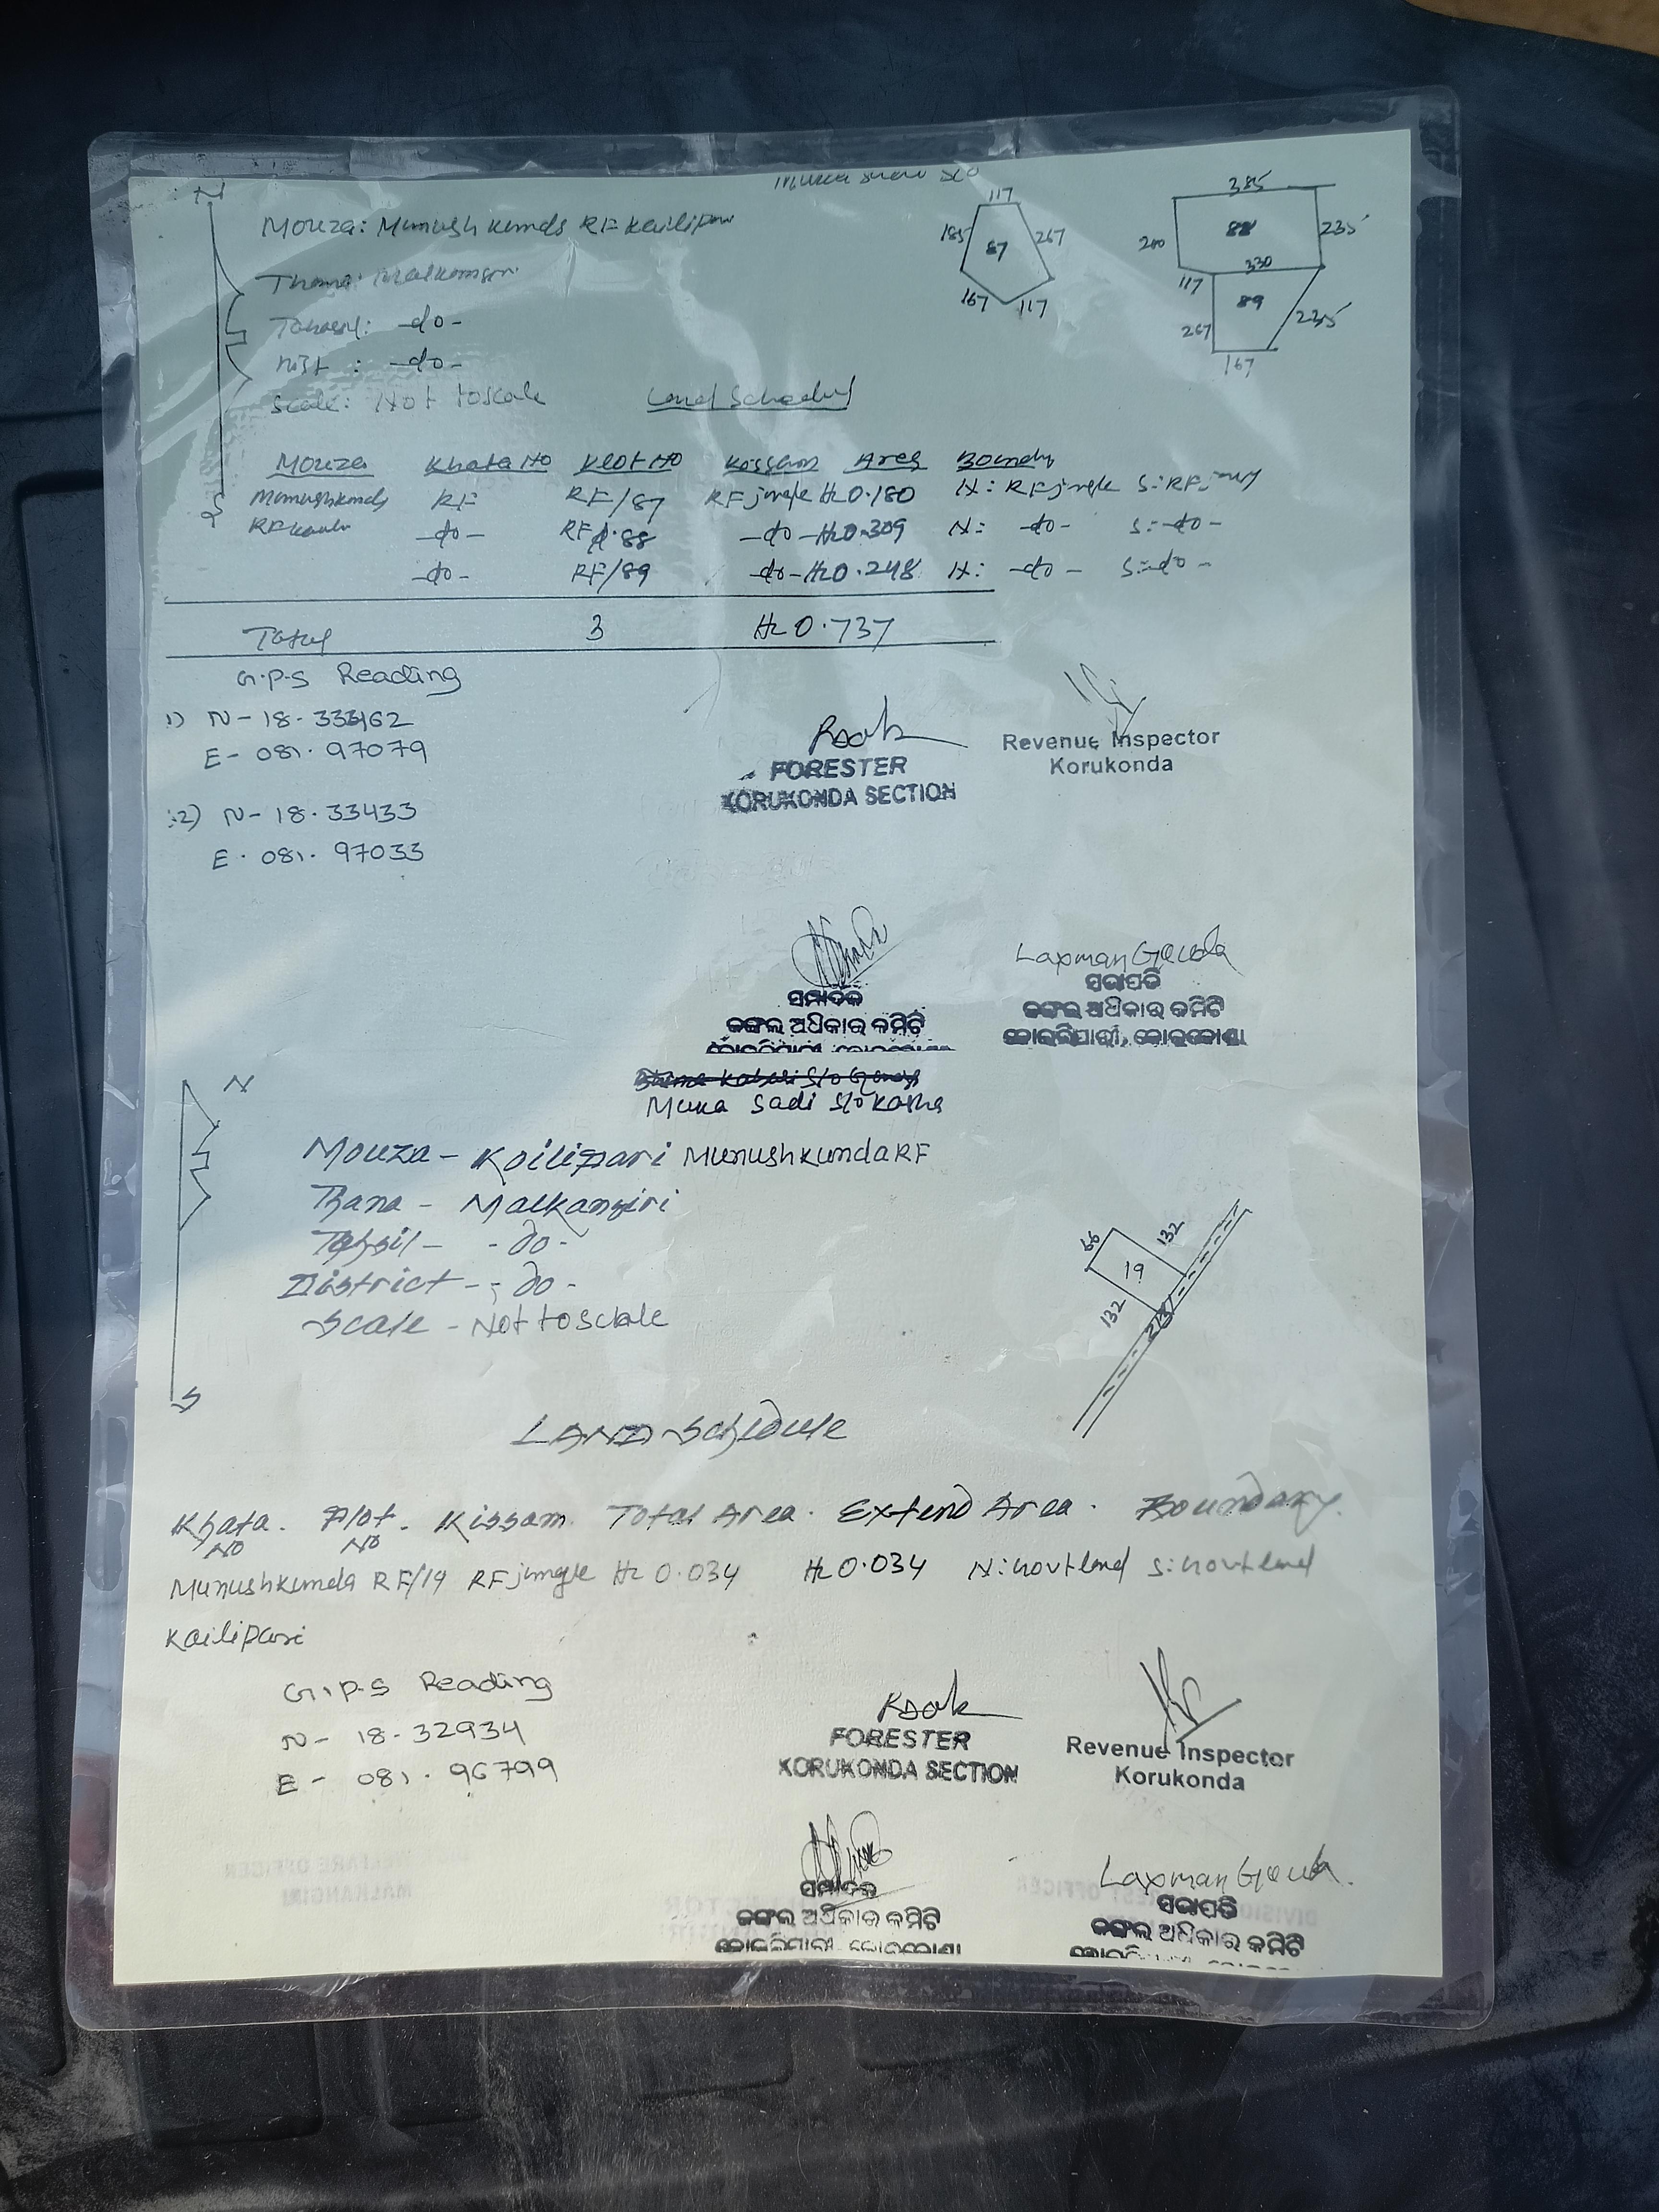 N
Mouza: Munushkunda RF Kailipari
117
185
87
267
167
117
385
240
88
235
330
117
89
267
235
167
Thana: Malkangiri
Tahasil: -do-
Dist : -do-
Scale: Not to scale
Land Schedul
Mouza Khata No Plot No Kissam Area Boundry
Munushkunda RF RF/87 RF jungle H 0.180 N: RF jungle S: RF jungle
-do- RF/88 -do- H 0.309 N: -do- S: -do-
-do- RF/89 -do- H 0.248 N: -do- S: -do-
S
Total 3 H 0.737
G.P.S Reading
1) N - 18.
E - 081.97079
FORESTER
KORUKONDA SECTION
Revenue Inspector
Korukonda
2) N - 18.33433
E. 081.97033
Laxman Gouda
ସମ୍ପାଦକ
ଜଙ୍ଗଲ ଅଧିକାର କମିଟି
ସଭାପତି
ଜଙ୍ଗଲ ଅଧିକାର କମିଟି
କୋଇଲିପାରୀ, କୋରୁକୋଣ୍ଡା
Muka Sadi S/o Kasha
N
Mouza - Koilipari Munushkunda RF
Thana - Malkangiri
Tahsil - - do -
District - - do -
Scale - Not to sclale
S
66
132
19
132
218
LAND Schidule
Khata No Plot No Kissam Total Area. Extend Area. Boundary.
Munushkunda RF/19 RF jungle H 0.034 H 0.034 N: Govt land S: Govt land
Kailipari
G.P.S Reading
N - 18.32934
E - 081.96799
FORESTER
KORUKONDA SECTION
Revenue Inspector
Korukonda
Laxman Gouda.
ସମ୍ପାଦକ
ଜଙ୍ଗଲ ଅଧିକାର କମିଟି
ସଭାପତି
ଜଙ୍ଗଲ ଅଧିକାର କମିଟି